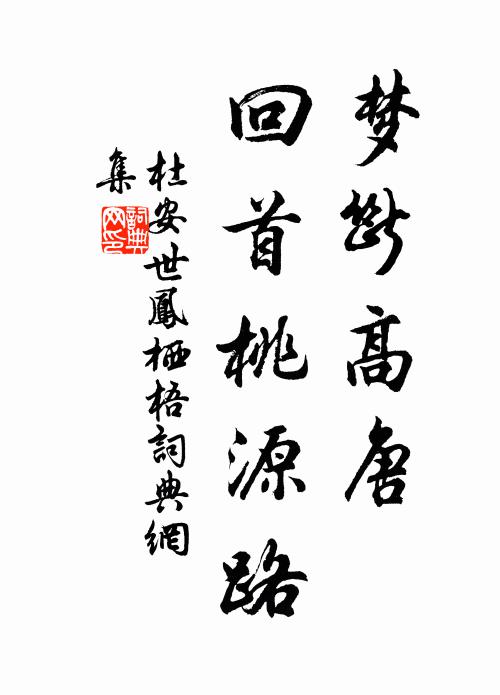 梦断高唐
回首桃源路
杜安世鳳栖梧詞典網
集
詞典
网